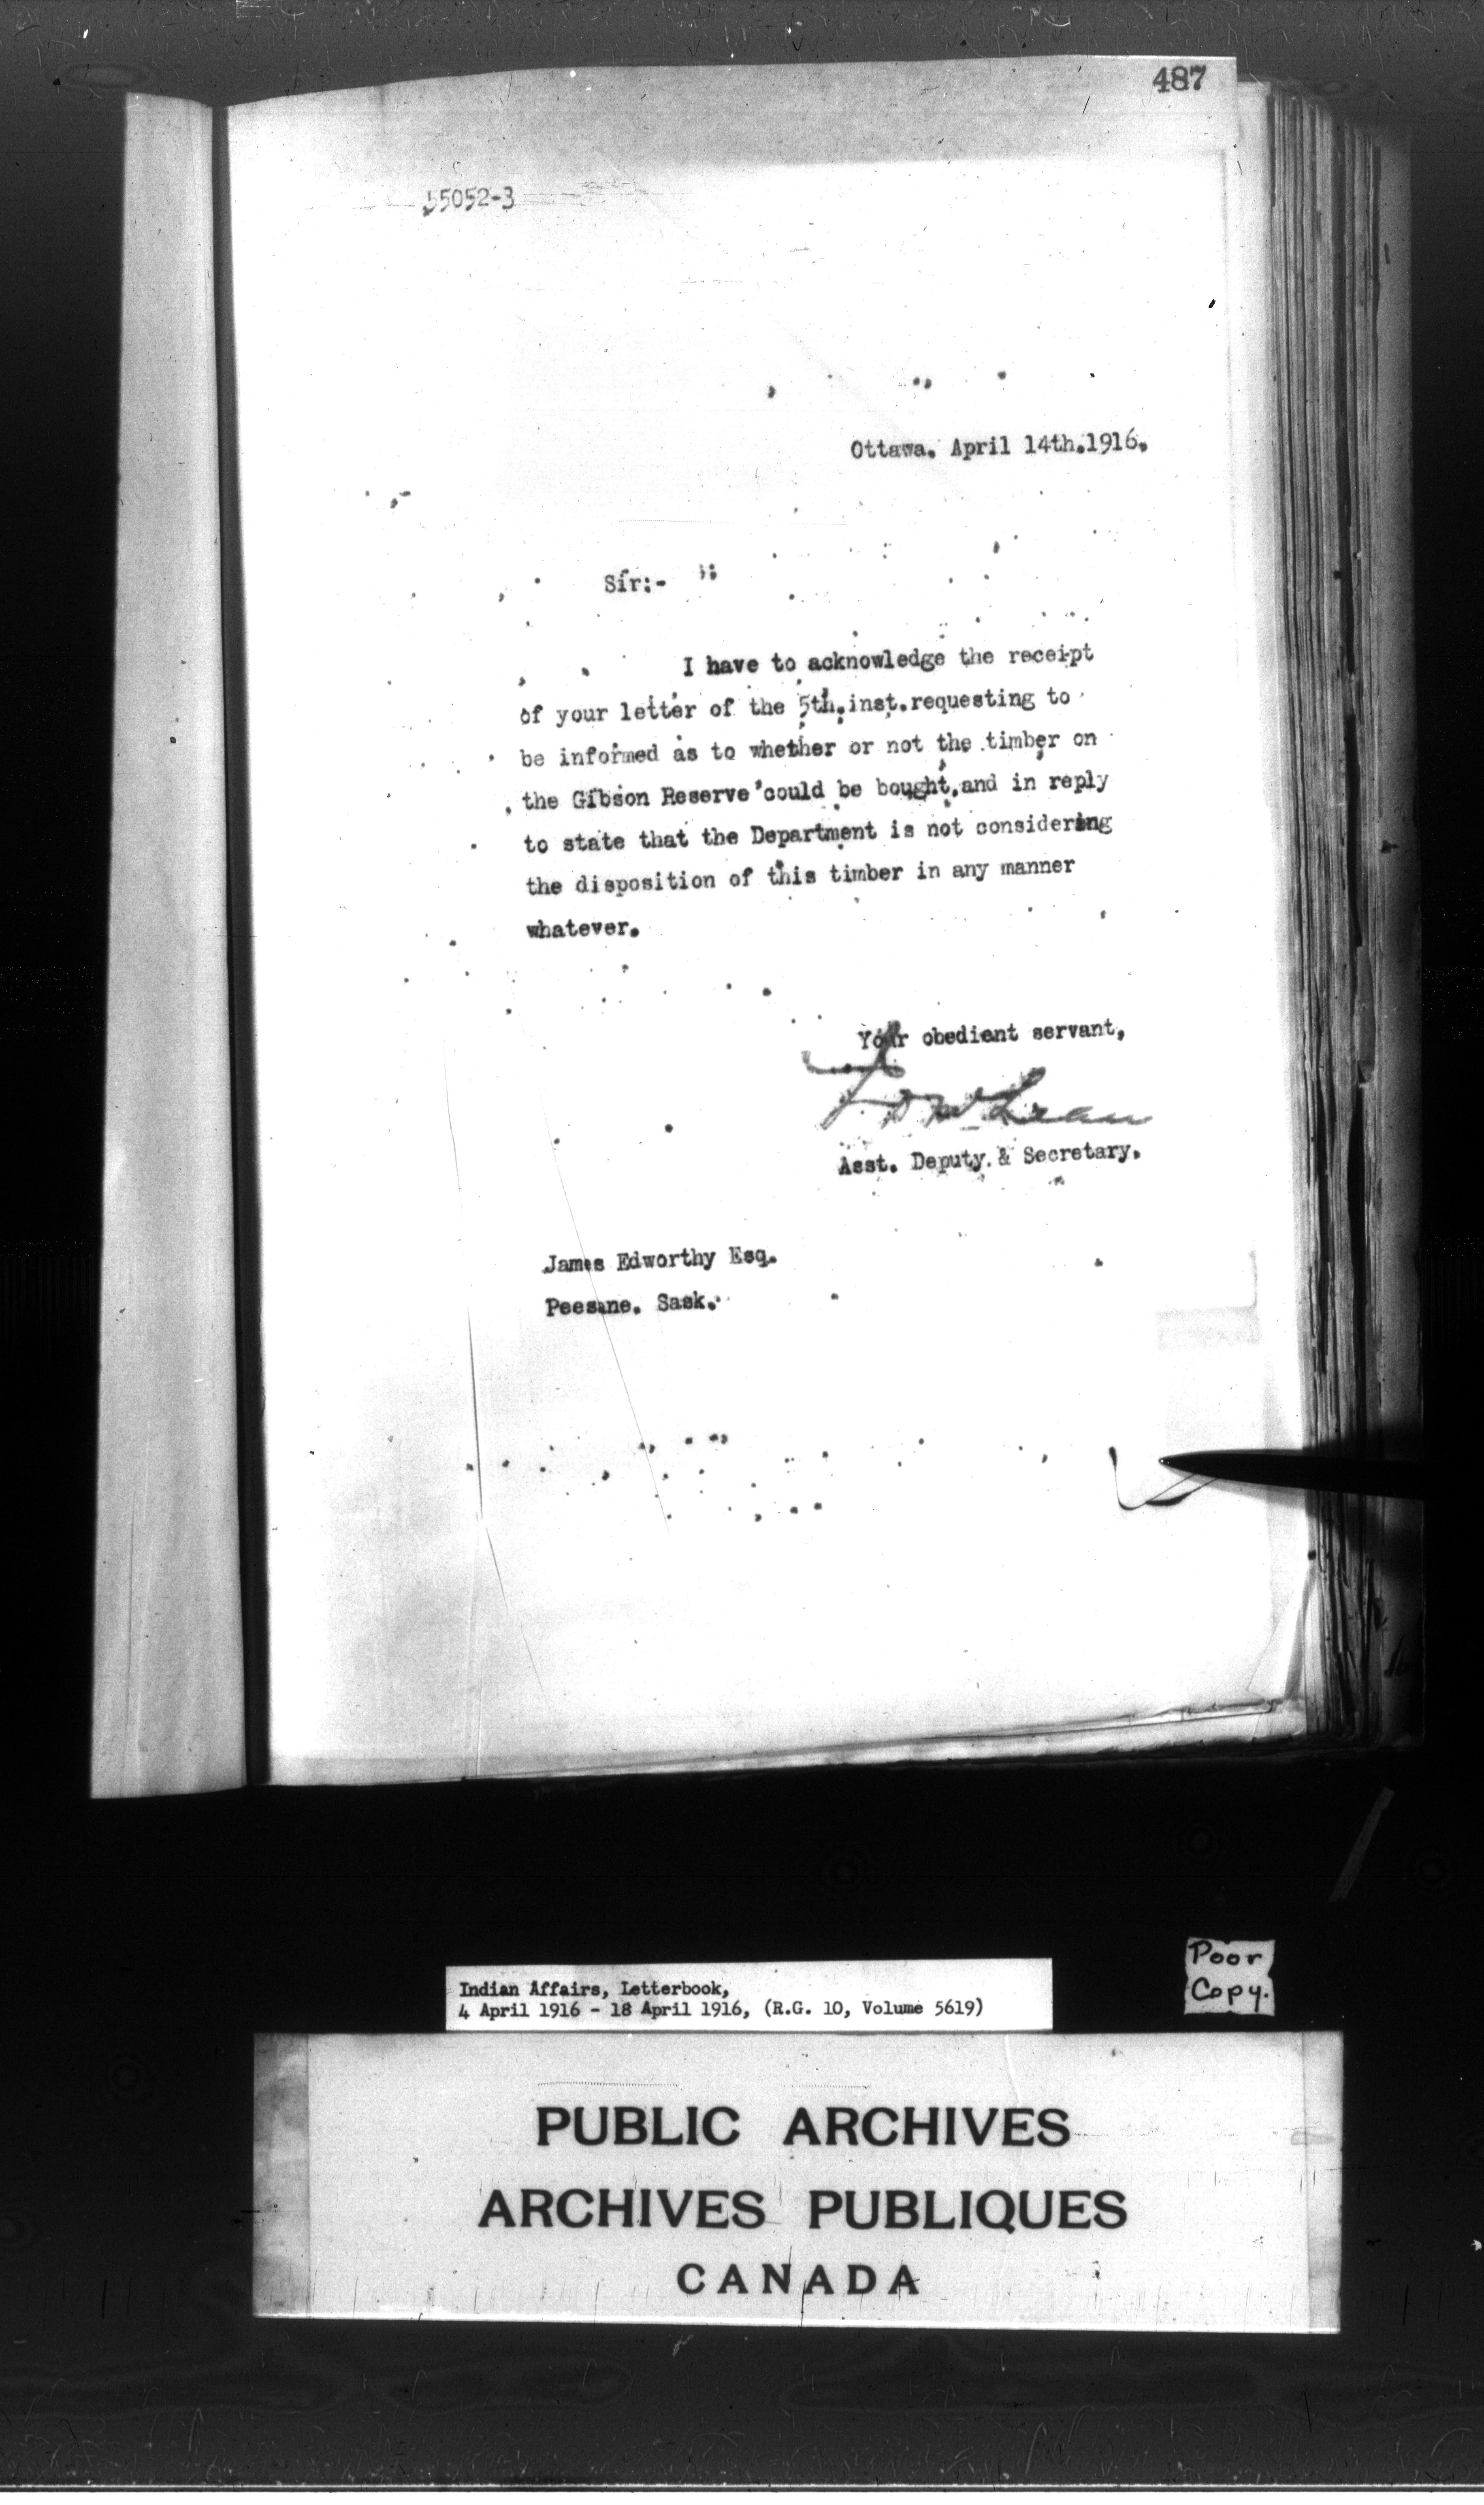 487
55052-3
Ottawa. April 14th.1916.
Sir:-
I have to acknowledge the receipt
of your letter of the 5th.inst.requesting to
be informed as to whether or not the timber on
the Gibson Reserve could be bought,and in reply
to state that the Department is not considering
the disposition of this timber in any manner
whatever.
Your obedient servant,
J D McLean
Asst. Deputy & Secretary.
James Edworthy Esq.
Peesane. Sask.
Indian Affairs, Letterbook,
4 April 1916 - 18 April 1916, (R.G. 10, Volume 5619)
Poor
Copy.
PUBLIC ARCHIVES
ARCHIVES PUBLIQUES
CANADA